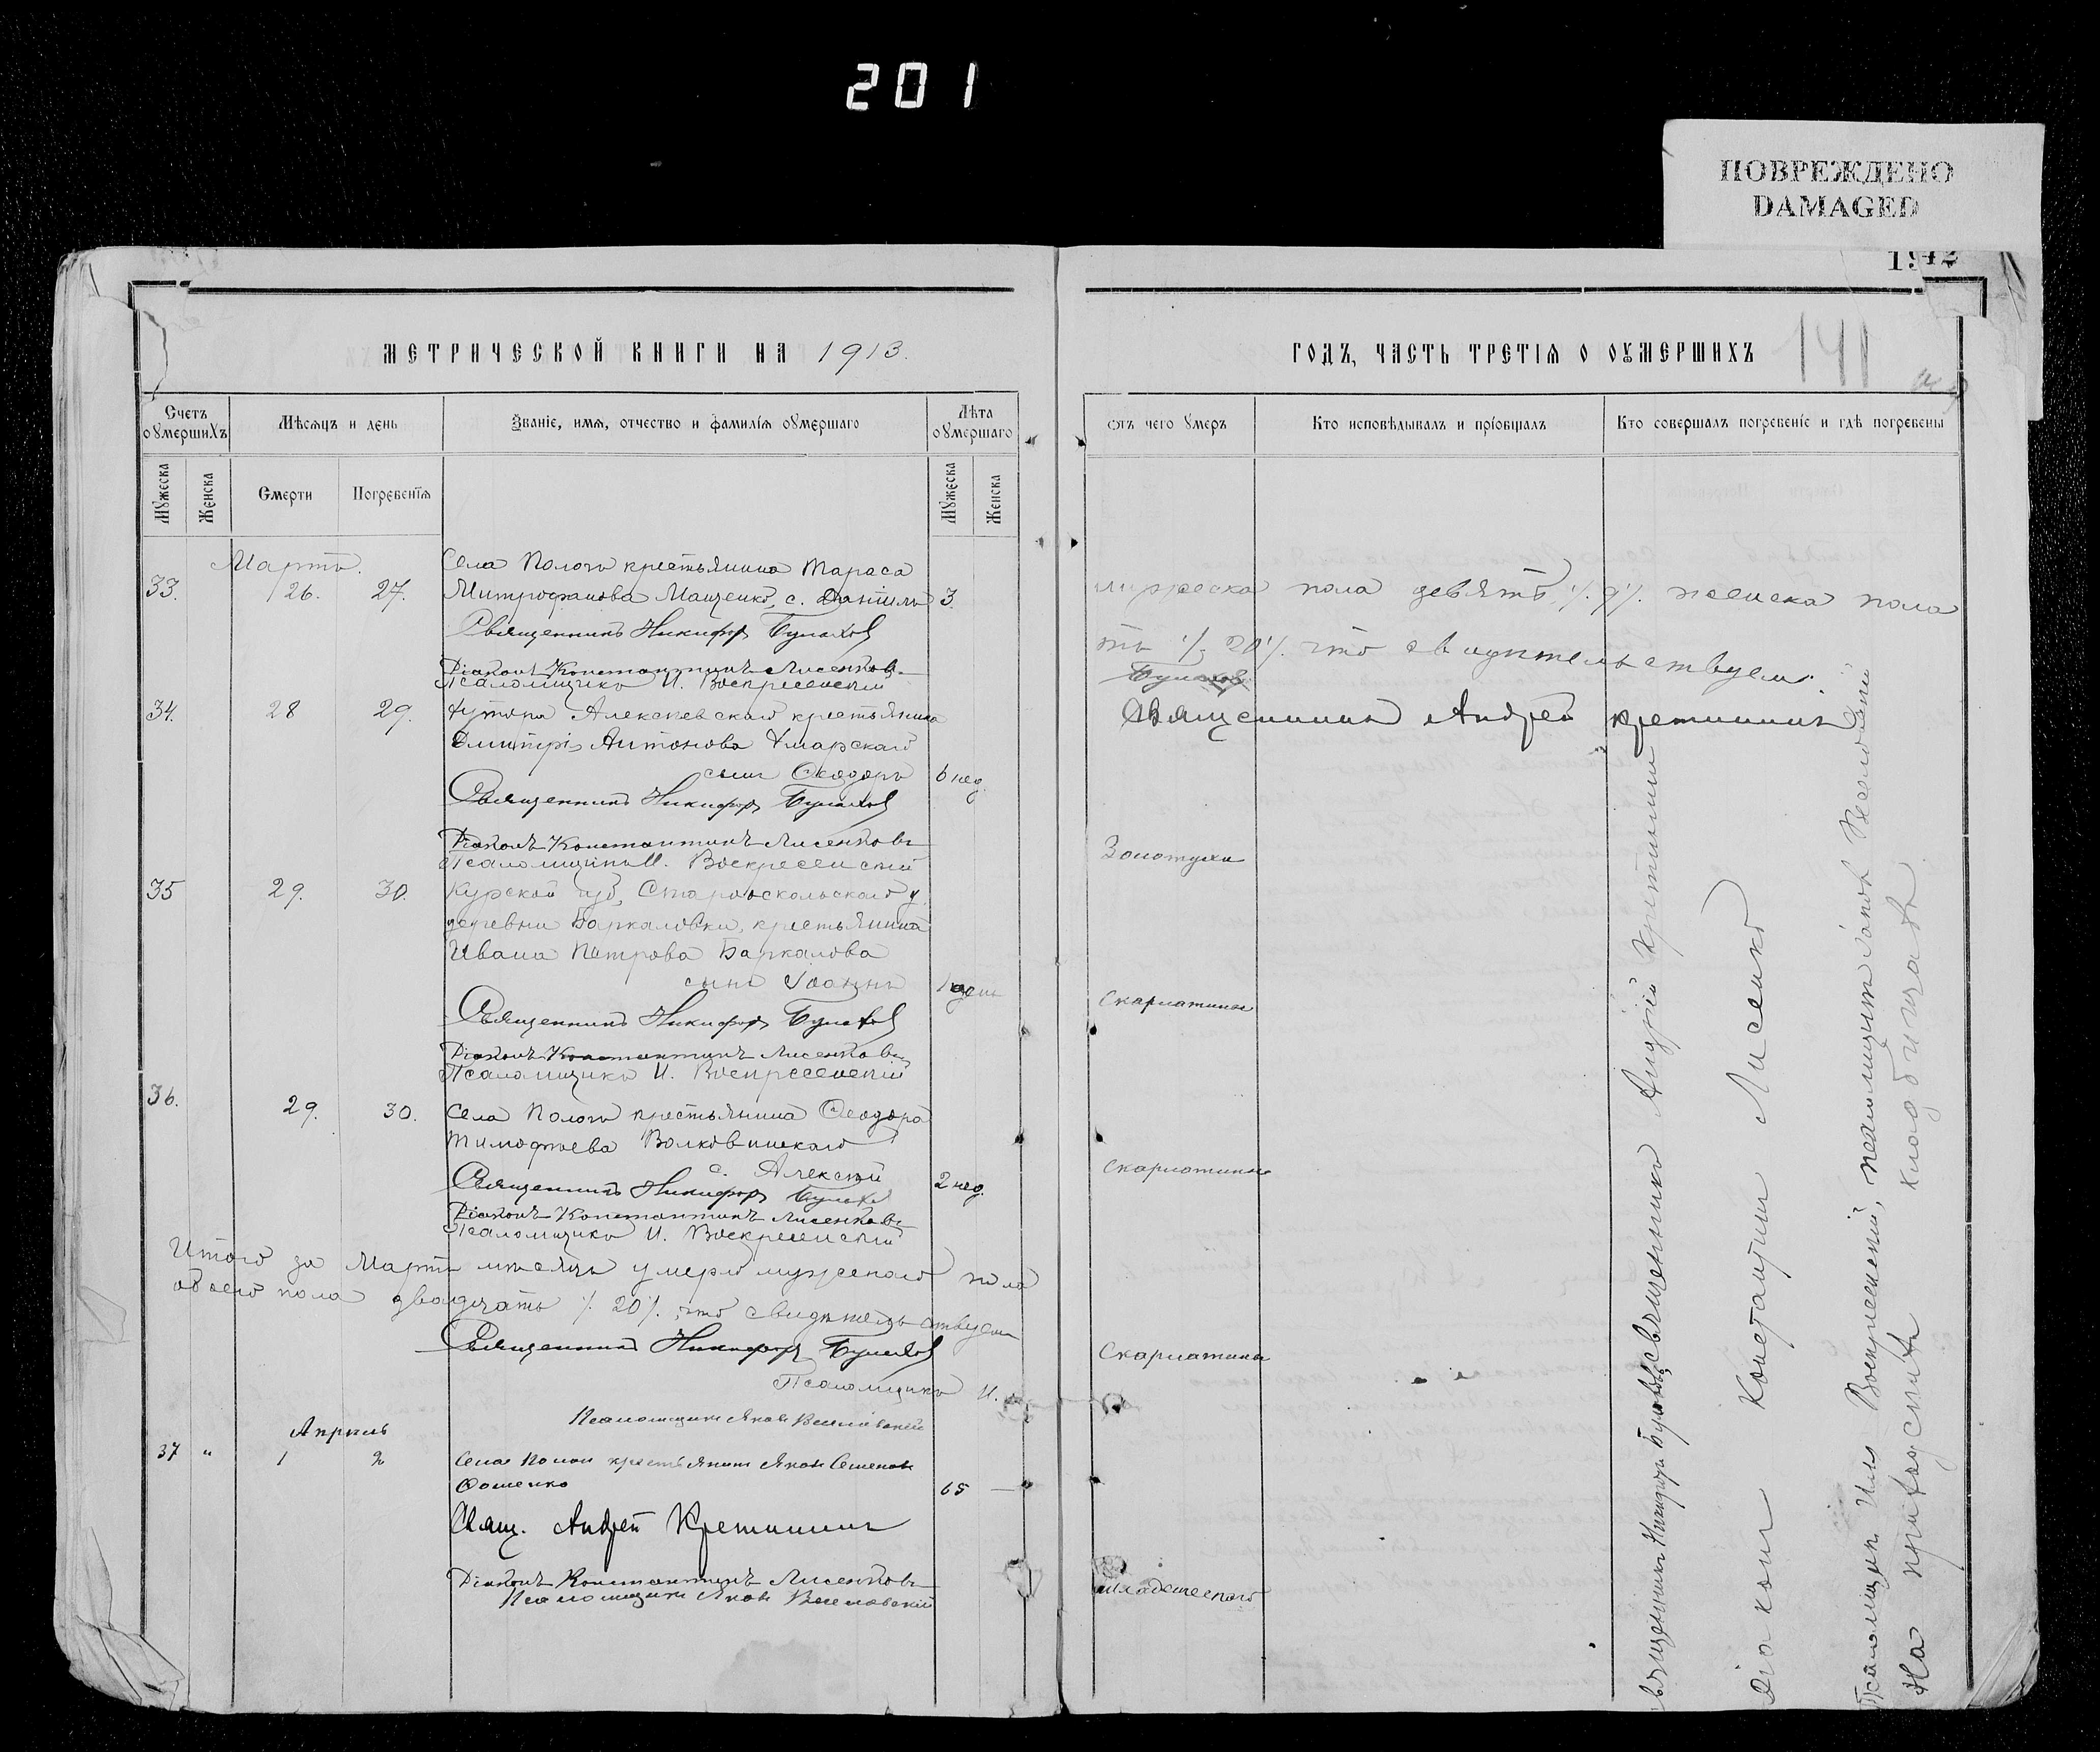 201
ПОВРЕЖДЕНО
DAMAGED
МЕТРИЧЕСКОЙ КНИГИ НА 1913.
Счетъ оумершихъ
Мѣсяцъ и день
Званіе, имя, отчество и фамилія оумершаго
Лѣта оумершаго
Мужеска
Женска
Смерти
Погребенія
Мужеска
Женска
Мартъ.
33. 26. 27. Села Пологъ крестьянина Тараса
Митрофанова Мащенко, с. Даніилъ 3.
Священникъ Никифоръ Булахов
Діаконъ Константинъ Лисенковъ
Псаломщикъ И. Воскресенскій
34. 28 29. Хутора Алексѣевскаго крестьянина
Димитрія Антонова Хмарскаго
сынъ Ѳеодоръ 6 нед.
Священникъ Никифоръ Булахов
Діаконъ Константинъ Лисенковъ
Псаломщикъ И. Воскресенскій
35 29. 30. Курской губ, Старооскольскаго у.
деревни Баркаловки, крестьянина
Ивана Петрова Баркалова
сынъ Іоаннъ 1 день
Священникъ Никифоръ Булахов
Діаконъ Константинъ Лисенковъ
Псаломщикъ И. Воскресенскій
36. 29. 30. Села Пологъ крестьянина Ѳеодора
Тимофѣева Волковинскаго
с. Алексѣй 2 нед.
Священникъ Никифоръ Булахов
Діаконъ Константинъ Лисенковъ
Псаломщикъ И. Воскресенскій
Итого за Мартъ мѣсяцъ умерло мужескаго пола
обоего пола двадцать /. 20 /. что свидѣтельствуем
Священникъ Никифоръ Булахов
Псаломщикъ И.
Псаломщикъ Яковъ
Апрѣль
37 " 1 2 Села Пологи крестьянин Яковъ Семенов
Фоменко 65 —
Свящ. Андрей Кретининъ
Діаконъ Константинъ Лисенковъ
Псаломщикъ Яковъ
ГОДЪ, ЧАСТЬ ТРЕТІЯ О ОУМЕРШИХЪ
141
Отъ чего умеръ
Кто исповѣдывалъ и пріобщалъ
Кто совершалъ погребеніе и гдѣ погребены
мужеска пола девять /. 9 /. женска пола
ть /. 20 /. что свидѣтельствуем.
Булахов
Священникъ Андрей Кретининъ
Золотухи
Скарлатины
Скарлатины
Скарлатины
младенческаго
Священникъ Никифоръ Булаховъ, Священникъ Андрей Кретининъ
Діаконъ Константин Лисенко
Псаломщик Илья Воскресенскій, псаломщик Яков
На приходскомъ кладбищѣ